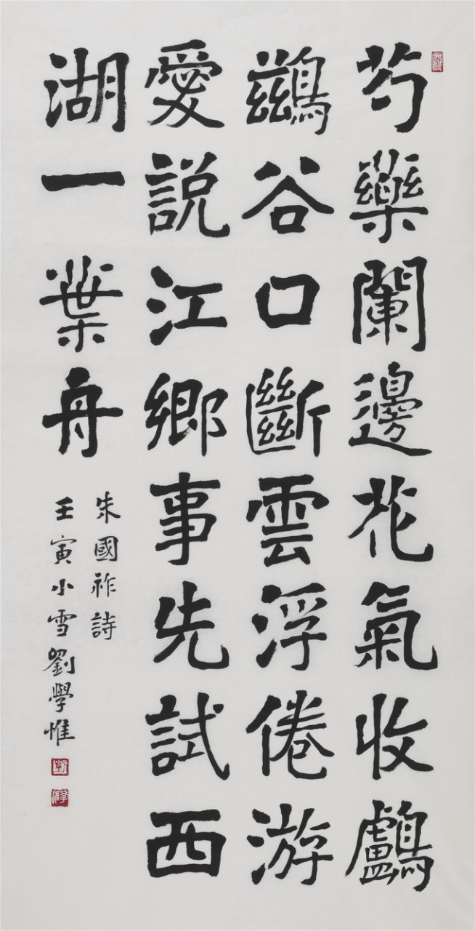 芍藥闌邊花氣收鸕
鷀谷口斷雲浮倦游
愛説江鄉事先試西
湖一葉舟
朱國祚詩
壬寅小雪劉學惟